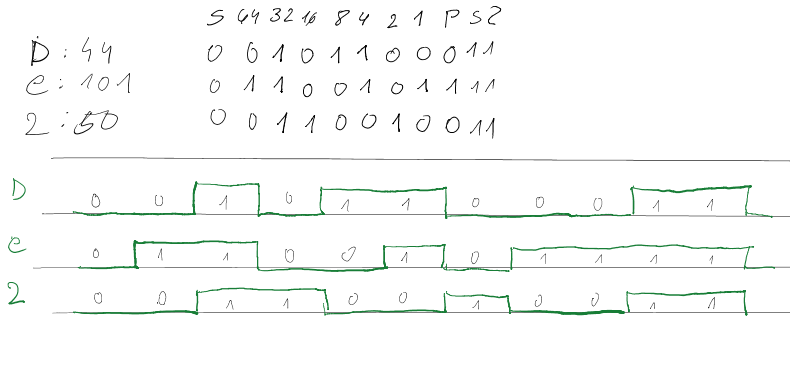 S 64 32 16 8 4 2 1 P S2
D : 44 0 0 1 0 1 1 0 0 0 11
e : 101 0 1 1 0 0 1 0 1 1 11
2 : 50 0 0 1 1 0 0 1 0 0 11
D 0 0 1 0 1 1 0 0 0 1 1
e 0 1 1 0 0 1 0 1 1 1 1
2 0 0 1 1 0 0 1 0 0 1 1